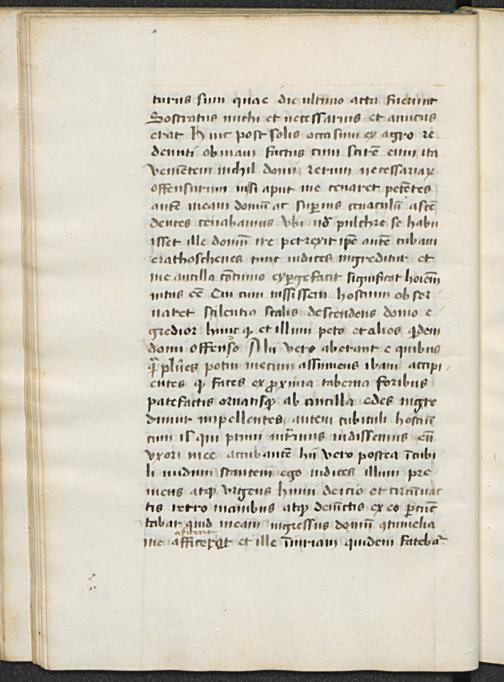 turus sum quae die ultimo acta fuerunt
Sostratus michi et necessarius et amicus
erat Huic post solis occasum ex agro re
deunti obuiam factus cum scirem eum ita
venientem nichil domi rerum necessariarum
offensurum nisi aput me cenaret petentes
autem meam domum ac superius cenaculum ascen
dentes cenabamus Vbi pulchre se habu
isset ille domum ire perrexit ipse autem cubam
erathosthenes tunc iudices ingreditur et
me ancilla continuo expergefacit significat hominem
intus esse Cui cum iussissem hostium obser
uaret silentio scalis descendens domo e
gredior hunc et illum peto et alios quidem
domi offenso Alii vero aberant e quibus
plures potui mecum assumens ibam accipi
entes faces ex proxima taberna foribus
patefactis ab ancilla edes ingre
dimur impellentes autem cubiculi hostium
cum ii qui primi intrauimus uidissemus eum
vxori mee accubantem hii vero postea in cubi
li nudum stantem ego iudices illum pre
mens atque vrgens humi deicio et circumac
tis retro manibus atque deuinctis ex eo percunc
tabar quid meam ingressus domum contumelia
me afficeret et ille iniuriam quidem fatebatur